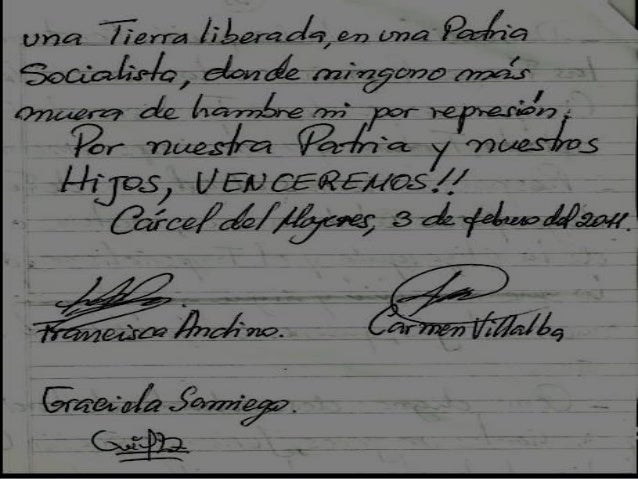 una Tierra liberada, en una Patria
Socialista, donde ninguno más
muera de hambre ni por represión;
Por nuestra Patria y nuestros
Hijos, VENCEREMOS!!
Cárcel del Mujeres, 3 de febrero del 2011.
Francisca Andino. Carmen Villalba
Graciela Samniego.